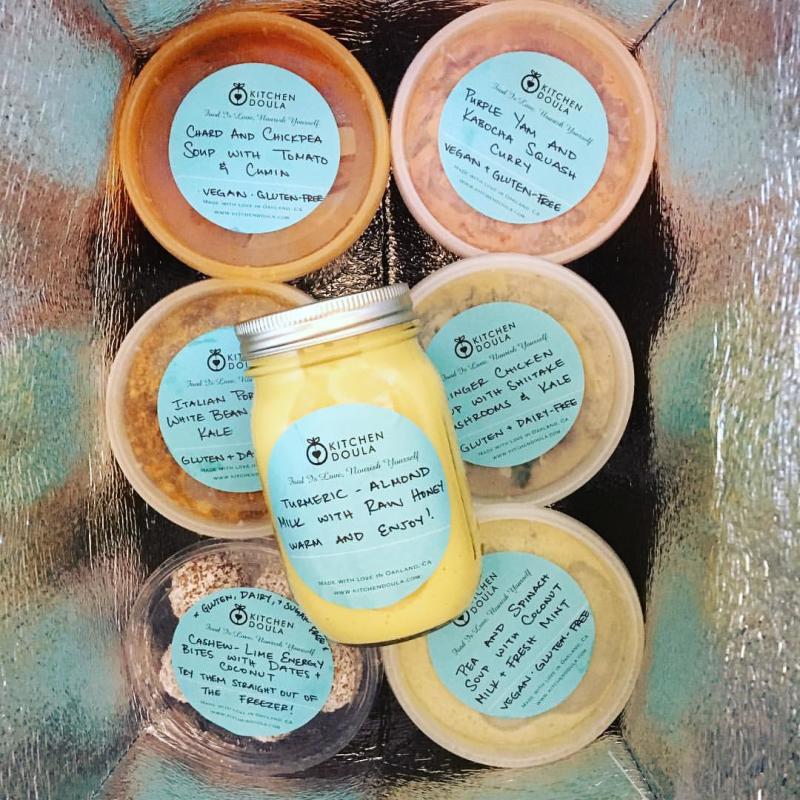 KITCHEN
DOULA
Food Is Love, Nourish Yourself
CHARD AND CHICKPEA
SOUP WITH TOMATO
& CUMIN
VEGAN · GLUTEN-FREE
MADE WITH LOVE IN OAKLAND, CA
WWW.KITCHENDOULA.COM
KITCHEN
DOULA
Food Is Love, Nourish Yourself
PURPLE YAM AND
KABOCHA SQUASH
CURRY
VEGAN + GLUTEN-FREE
MADE WITH LOVE IN OAKLAND, CA
WWW.KITCHENDOULA.COM
KITCHEN
Food Is Love,
ITALIAN
WHITE BEAN
KALE
GLUTEN +
MADE WITH
KITCHEN
DOULA
Food Is Love, Nourish Yourself
CHICKEN
WITH SHIITAKE
& KALE
GLUTEN + DAIRY-FREE
MADE WITH LOVE IN OAKLAND, CA
WWW.KITCHENDOULA.COM
KITCHEN
DOULA
Food Is Love, Nourish Yourself
TURMERIC - ALMOND
MILK WITH RAW HONEY
WARM AND ENJOY!
MADE WITH LOVE IN OAKLAND, CA
WWW.KITCHENDOULA.COM
* GLUTEN, DAIRY, + SUGAR-FREE *
KITCHEN
DOULA
Food Is Love, Nourish Yourself
CASHEW-LIME ENERGY
BITES WITH DATES +
COCONUT
TRY THEM STRAIGHT OUT OF
THE FREEZER!
MADE WITH LOVE IN OAKLAND, CA
WWW.KITCHENDOULA.COM
KITCHEN
DOULA
Food Is Love, Nourish Yourself
PEA AND SPINACH
SOUP WITH COCONUT
MILK + FRESH MINT
VEGAN · GLUTEN-FREE
MADE WITH LOVE IN OAKLAND, CA
WWW.KITCHENDOULA.COM